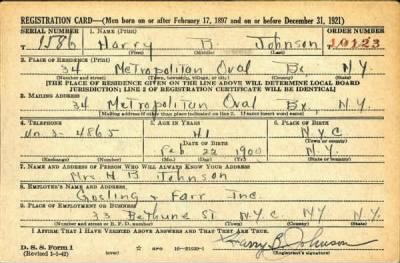 REGISTRATION CARD—(Men born on or after February 17, 1897 and on or before December 31, 1921)
SERIAL NUMBER 1. NAME (Print) ORDER NUMBER
1586 Harry B. Johnson 10123
(First) (Middle) (Last)
2. PLACE OF RESIDENCE (Print)
34 Metropolitan Oval Bx N.Y.
(Number and street) (Town, township, village, or city) (County) (State)
[THE PLACE OF RESIDENCE GIVEN ON THE LINE ABOVE WILL DETERMINE LOCAL BOARD
JURISDICTION; LINE 2 OF REGISTRATION CERTIFICATE WILL BE IDENTICAL]
3. MAILING ADDRESS
34 Metropolitan Oval Bx. N.Y.
[Mailing address if other than place indicated on line 2. If same insert word same]
4. TELEPHONE 5. AGE IN YEARS 6. PLACE OF BIRTH
41 N.Y.C
3-4865 DATE OF BIRTH
Feb 22 1900 N.Y.
(Exchange) (Number) (Mo.) (Day) (Yr.) (State or country)
7. NAME AND ADDRESS OF PERSON WHO WILL ALWAYS KNOW YOUR ADDRESS
Mrs. H B Johnson
8. EMPLOYER'S NAME AND ADDRESS
Gosling & Farr Inc.
9. PLACE OF EMPLOYMENT OR BUSINESS
33 Bethune St N.Y.C NY N.Y.
(Number and street or R. F. D. number) (Town) (County) (State)
I AFFIRM THAT I HAVE VERIFIED ABOVE ANSWERS AND THAT THEY ARE TRUE.
D. S. S. Form 1
(Revised 1-1-42) GPO 16-21630-1 Harry B Johnson
(Registrant's signature)